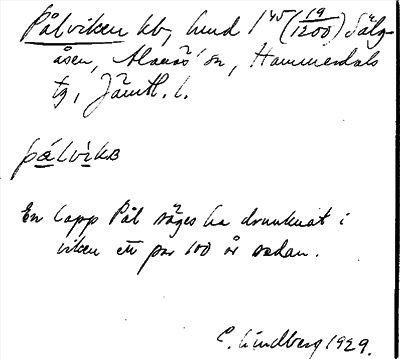 Pålviken kb, hmd 1 145 (19/1200) Sälg-
åsen, Alanäs sn, Hammerdals
tg, Jämtl. l.
pålvikɐ
En lapp Pål säges ha drunknat i
viken ett par 100 år sedan.
C. Lindberg 1929.